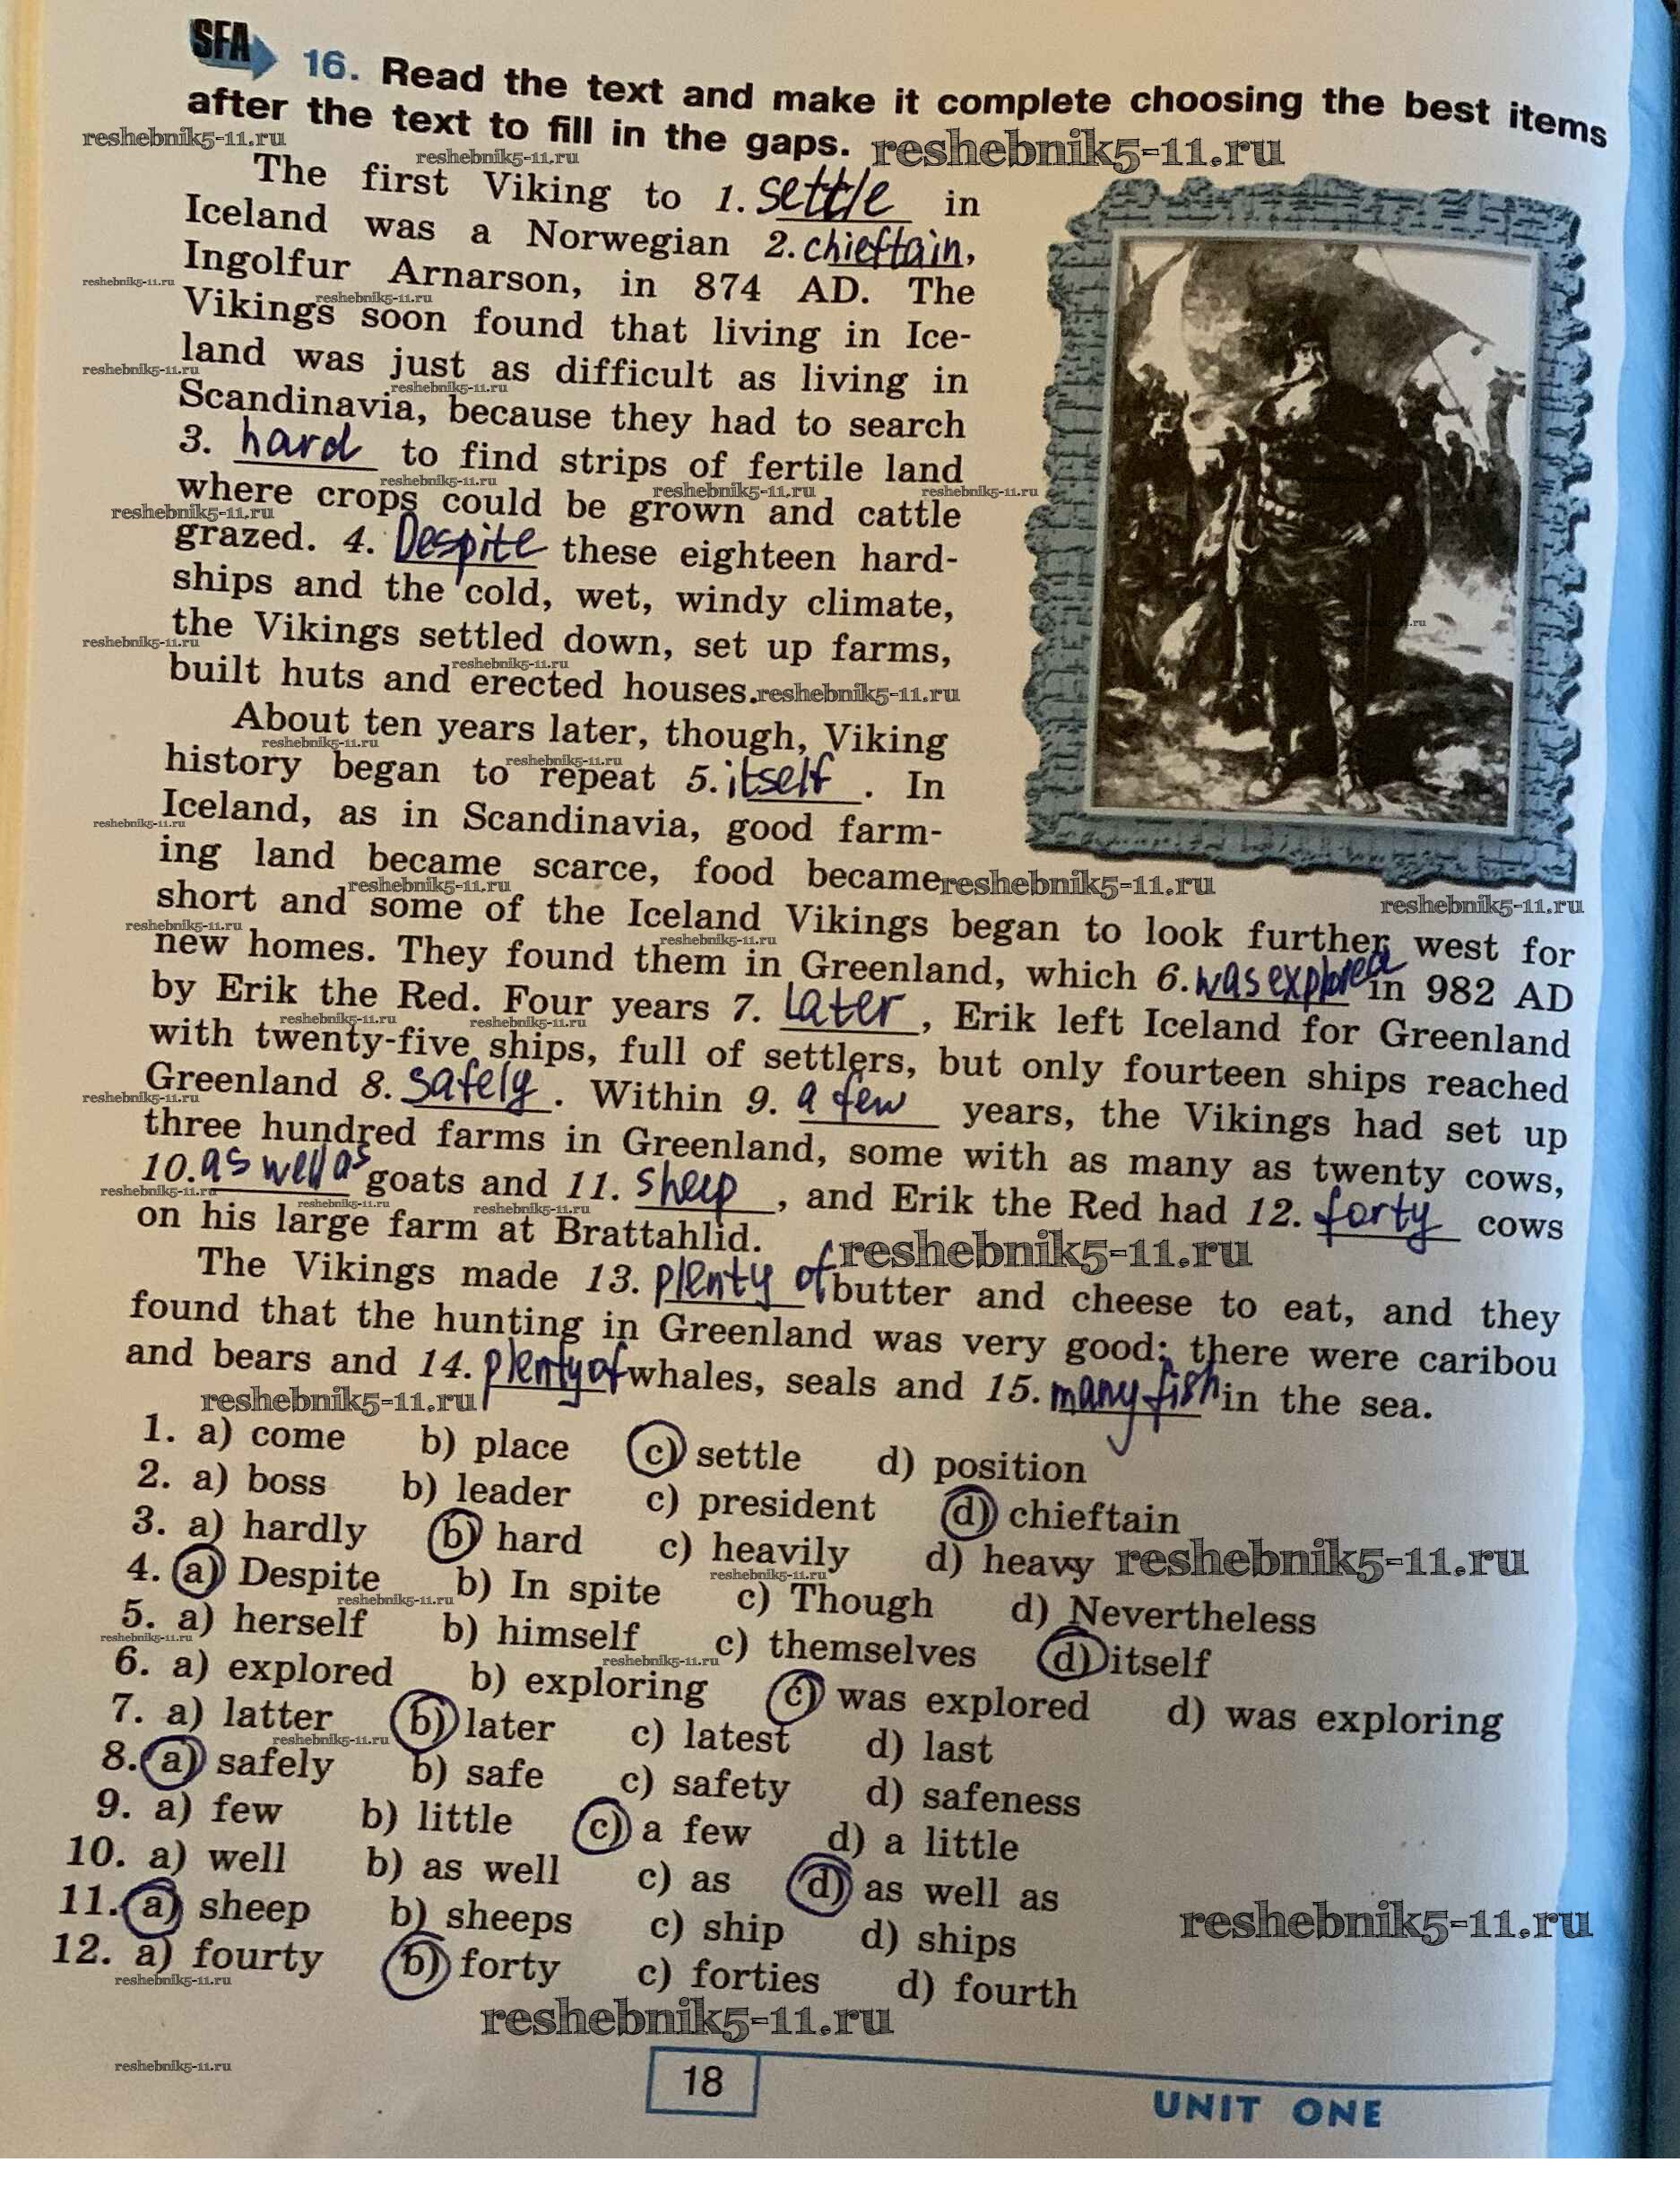 SFA 16. Read the text and make it complete choosing the best items
after the text to fill in the gaps.
reshebnik5-11.ru
The first Viking to 1. settle in
Iceland was a Norwegian 2. chieftain,
Ingolfur Arnarson, in 874 AD. The
Vikings soon found that living in Ice-
land was just as difficult as living in
Scandinavia, because they had to search
3. hard to find strips of fertile land
where crops could be grown and cattle
grazed. 4. Despite these eighteen hard-
ships and the cold, wet, windy climate,
the Vikings settled down, set up farms,
built huts and erected houses.
About ten years later, though, Viking
history began to repeat 5. itself. In
Iceland, as in Scandinavia, good farm-
ing land became scarce, food became
short and some of the Iceland Vikings began to look further west for
new homes. They found them in Greenland, which 6. was explored in 982 AD
by Erik the Red. Four years 7. Later, Erik left Iceland for Greenland
with twenty-five ships, full of settlers, but only fourteen ships reached
Greenland 8. safely. Within 9. a few years, the Vikings had set up
three hundred farms in Greenland, some with as many as twenty cows,
10. as well as goats and 11. sheep, and Erik the Red had 12. forty cows
on his large farm at Brattahlid.
The Vikings made 13. plenty of butter and cheese to eat, and they
found that the hunting in Greenland was very good: there were caribou
and bears and 14. plenty of whales, seals and 15. many fish in the sea.
1. a) come b) place c) settle d) position
2. a) boss b) leader c) president d) chieftain
3. a) hardly b) hard c) heavily d) heavy
4. a) Despite b) In spite c) Though d) Nevertheless
5. a) herself b) himself c) themselves d) itself
6. a) explored b) exploring c) was explored d) was exploring
7. a) latter b) later c) latest d) last
8. a) safely b) safe c) safety d) safeness
9. a) few b) little c) a few d) a little
10. a) well b) as well c) as d) as well as
11. a) sheep b) sheeps c) ship d) ships
12. a) fourty b) forty c) forties d) fourth
reshebnik5-11.ru
18
UNIT ONE